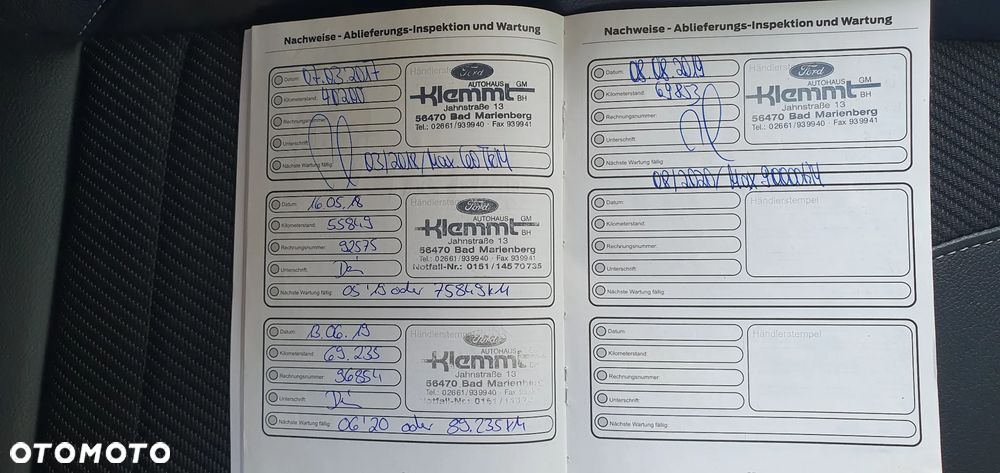 Nachweise - Ablieferungs-Inspektion und Wartung
Datum: 07.03.2017
Kilometerstand: 40200
Rechnungsnummer:
Unterschrift:
Nächste Wartung fällig: 03/2018/Max 60TKM
Händlerstempel
Ford
AUTOHAUS GM
Klemmt BH
Jahnstraße 13
56470 Bad Marienberg
Tel.: 02661/939940 · Fax 939941
Datum: 16.05.18
Kilometerstand: 55849
Rechnungsnummer: 92575
Unterschrift:
Nächste Wartung fällig: 05'19 oder 75849KM
Händlerstempel
Ford
AUTOHAUS GM
Klemmt BH
Jahnstraße 13
56470 Bad Marienberg
Tel.: 02661/939940 · Fax 939941
Notfall-Nr.: 0151/14570735
Datum: 13.06.19
Kilometerstand: 69.235
Rechnungsnummer: 96854
Unterschrift:
Nächste Wartung fällig: 06'20 oder 89.235KM
Händlerstempel
Ford
AUTOHAUS
Klemmt
Jahnstraße 13
56470 Bad Marienberg
Tel.: 02661/939940 · Fax
Notfall-Nr.:
Nachweise - Ablieferungs-Inspektion und Wartung
Datum: 08.08.2019
Kilometerstand: 69853
Rechnungsnummer:
Unterschrift:
Nächste Wartung fällig:
08/2020/ Max 90000KM
Händlerstempel
Ford
AUTOHAUS GM
Klemmt BH
Jahnstraße 13
56470 Bad Marienberg
Tel.: 02661/939940 · Fax 939941
Datum:
Kilometerstand:
Rechnungsnummer:
Unterschrift:
Nächste Wartung fällig:
Händlerstempel
Datum:
Kilometerstand:
Rechnungsnummer:
Unterschrift:
Nächste Wartung fällig:
Händlerstempel
OTOMOTO